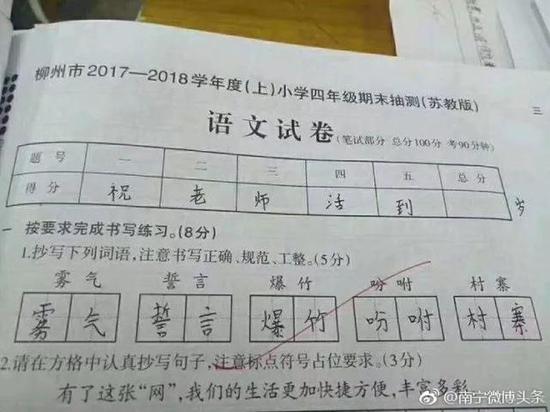 柳州市2017—2018学年度(上)小学四年级期末抽测(苏教版)
三
语文试卷(笔试部分 总分100分 考90分钟)
题号 一 二 三 四 五 总分
得分 祝 老 师 活 到 岁
一 按要求完成书写练习。(8分)
1.抄写下列词语,注意书写正确、规范、工整。(5分)
雾气 誓言 爆竹 吩咐 村寨
雾气 誓言 爆竹 吩咐 村寨
2.请在方格中认真抄写句子,注意标点符号占位要求。(3分)
有了这张“网”,我们的生活更加快捷方便,丰富多彩
@南宁微博头条